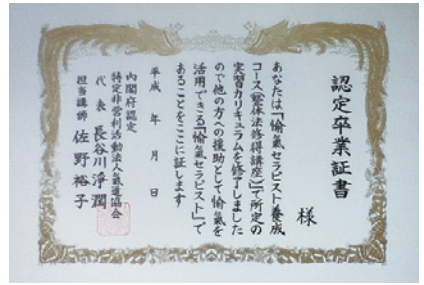 認定卒業証書
様
あなたは「愉氣セラピスト養成
コース(整体法修得講座)」で所定の
実習カリキュラムを修了しました
ので他の方への援助として愉氣を
活用できる「愉氣セラピスト」で
あることをここに証します
平成 年 月 日
内閣府認定
特定非営利活動法人氣道協会
代表 長谷川淨潤
担当講師 佐野裕子